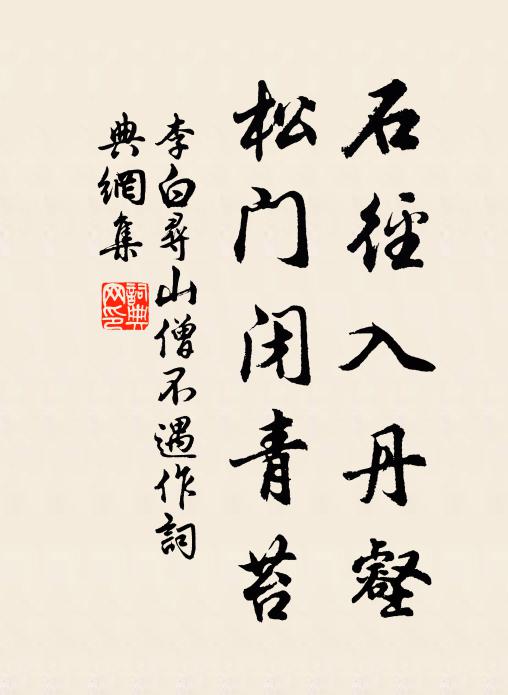 石徑入丹壑
松门闭青苔
李白尋山僧不遇作詞
典網集
詞典网印